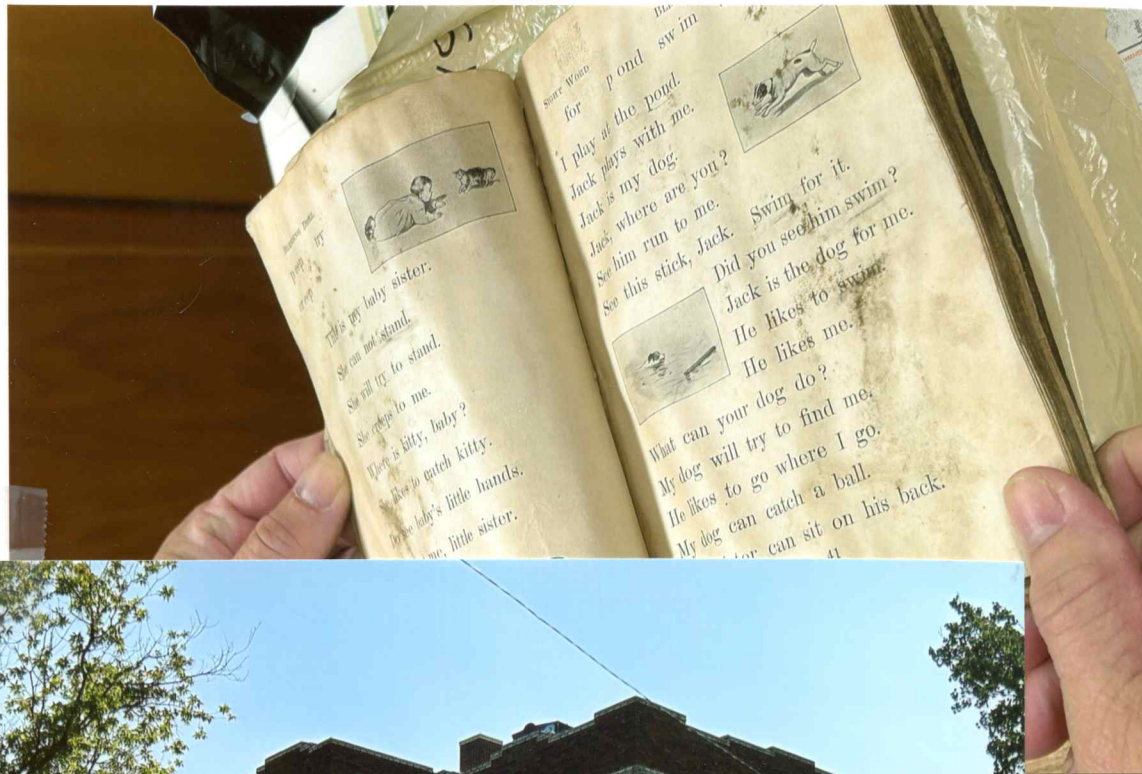 peep try
creep
This is my baby sister.
She can not stand.
She will try to stand.
She creeps to me.
Where is kitty, baby?
She likes to catch kitty.
Do see baby's little hands.
me, little sister.
SIGHT WORD
for pond swim
I play at the pond.
Jack plays with me.
Jack is my dog.
Jack, where are you?
See him run to me.
See this stick, Jack. Swim for it.
Did you see him swim?
Jack is the dog for me.
He likes to swim.
He likes me.
What can your dog do?
My dog will try to find me.
He likes to go where I go.
My dog can catch a ball.
can sit on his back.